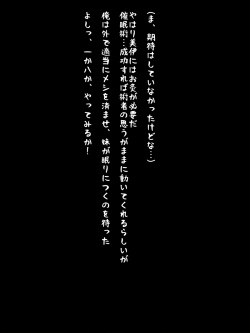 （ま、期待はしていなかったけどな…）
やはり美伊にはお灸が必要だ
催眠術…成功すれば術者の思うがままに動いてくれるらしいが
俺は外で適当にメシを済ませ、妹が眠りにつくのを待った
よしっ、一か八か、やってみるか！